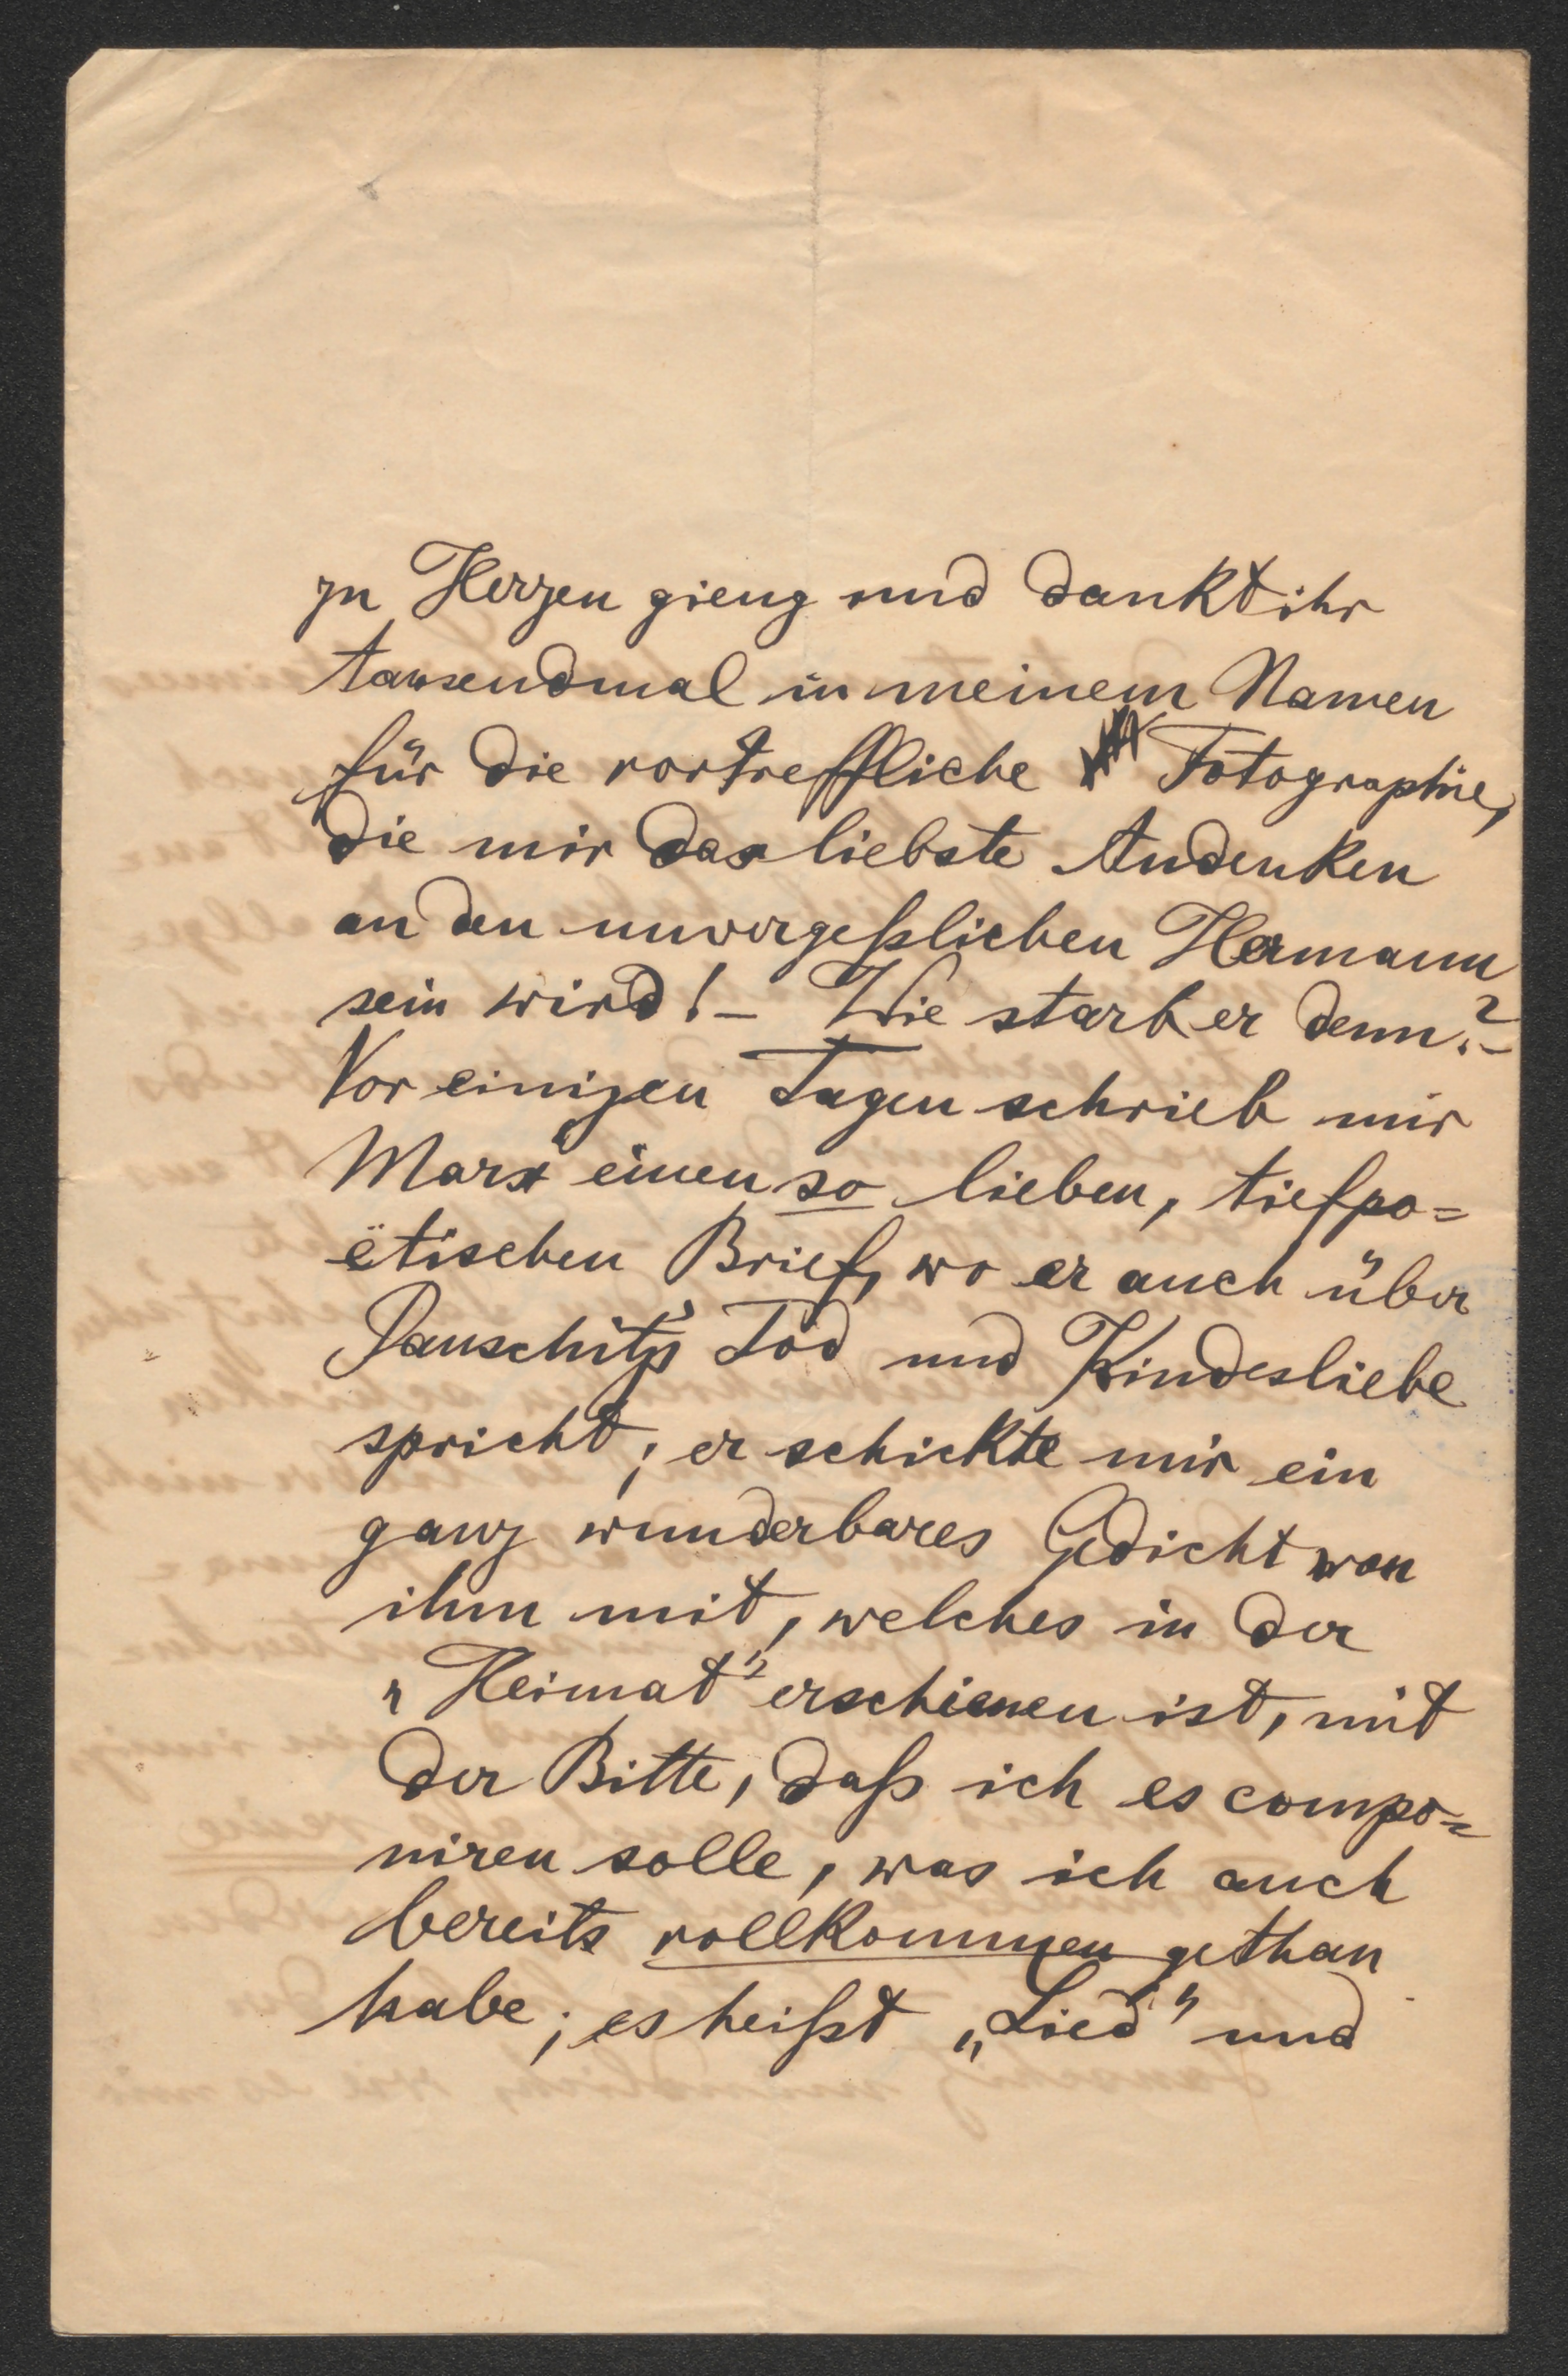 zu Herzen gieng und dankt ihr
tausendmal in meinem Namen
für die vortreffliche Fotographie,
die mir das liebste Andenken
an den unvergeßlichen Hermann
sein wird! – Wie starb er denn? –
Vor einigen Tagen schrieb mir
Marx einen so lieben, tiefpo=
ëtischen Brief, wo er auch über
Pauschitz's Tod und Kindesliebe
spricht; er schickte mir ein
ganz wunderbares Gedicht von
ihm mit, welches in der
„Heimat" erschienen ist, mit
der Bitte, daß ich es compo=
niren solle, was ich auch
bereits vollkommen gethan
habe; es heißt „Lied" und